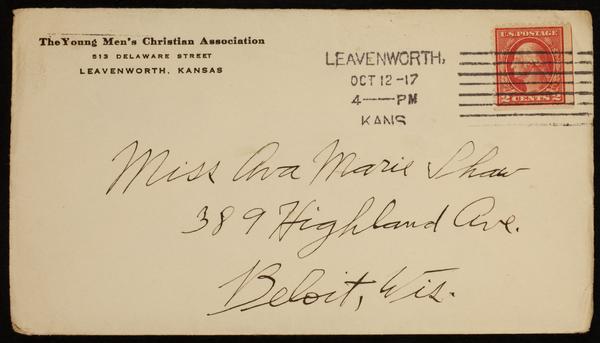 The Young Men's Christian Association
513 DELAWARE STREET
LEAVENWORTH, KANSAS
LEAVENWORTH,
OCT 12-17
4 — PM
KANS
U.S. POSTAGE
2 CENTS 2
Miss Ava Marie Shaw
389 Highland Ave.
Beloit, Wis.